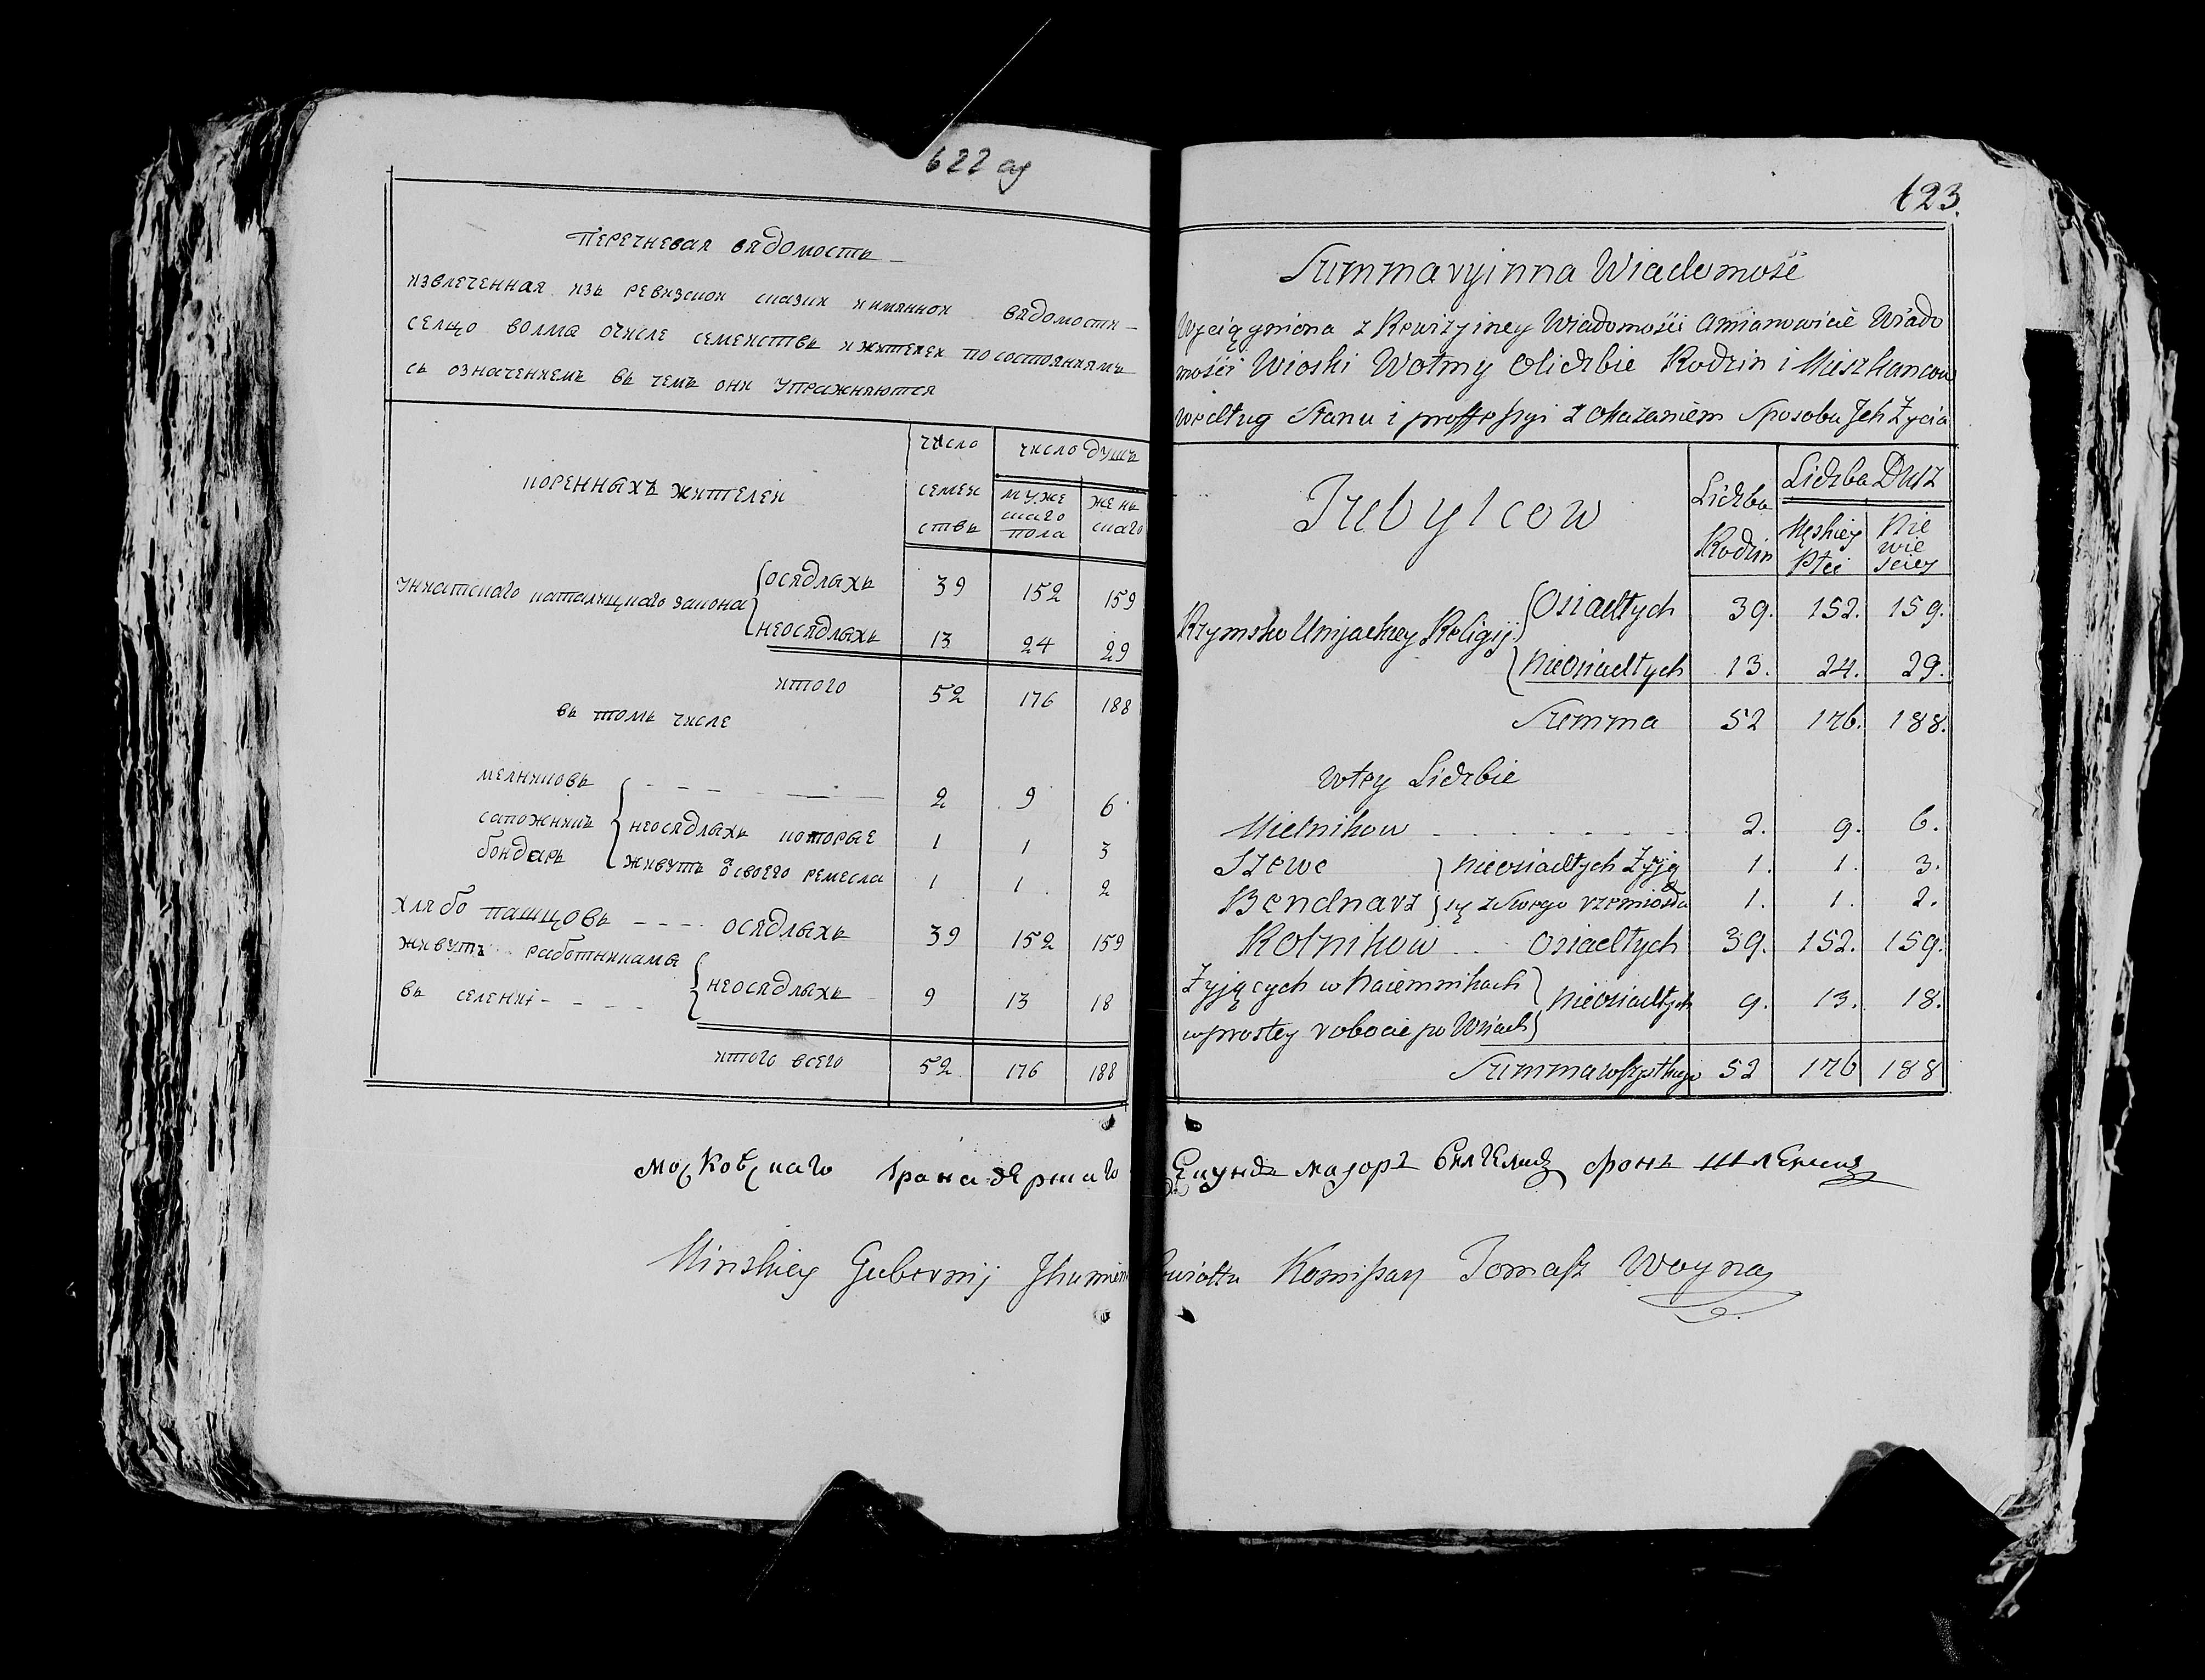 622 об
Перечневая вѣдомость
извлеченная изъ ревизской сказки и имянной вѣдомости
сельцо волма о числе семействъ и жителей по состояниямъ
съ означениемъ въ чемъ они упражняются
коренныхъ жителей
число семействъ
число душъ
мужескаго пола
женьскаго
униатскаго католицкаго закона
осядлыхъ 39 152 159
неосядлыхъ 13 24 29
итого 52 176 188
въ томъ числе
мелниковъ 2 9 6
сапожникъ неосядлыхъ которые 1 1 3
бондарь живутъ ѿ своего ремесла 1 1 2
хлябопашцовъ осядлыхъ 39 152 159
живутъ работниками
въ селениі неосядлыхъ 9 13 18
итого всего 52 176 188
623.
Summaryinna Wiadomość
Wyciągniona z Rewizyiney Wiadomości Amianowicie Wiado
mości Wioski Wołmy Oliczbie Rodzin i Mieszkancow
według Stanu i proffessyi z Okazaniem Sposobu Jch Zycia
Tubylcow
Liczba Rodzin
Liczba Dusz
Męskiey Płci
Niewiesciey
Rzymsko Unijackiey Religij
Osiadłych 39. 152. 159.
Nieosiadłych 13. 24. 29.
Summa 52 176. 188.
wtey Liczbie
Mielnikow 2. 9. 6.
Szewc nieosiadłych Żyją 1. 1. 3.
Bendnarz się z Swego rzemiosła 1. 1. 2.
Rolnikow Osiadłych 39. 152. 159.
Żyjących w Naiemnikach
wprostey robocie po Wsiach Nieosiadłych 9. 13. 18.
Summa wszystkiego 52 176 188
Московскаго гранадерскаго Секундъ маіоръ фонъ
Minskiey Gubernij Jhumen Powiattu Komissarz Tomasz Woyna